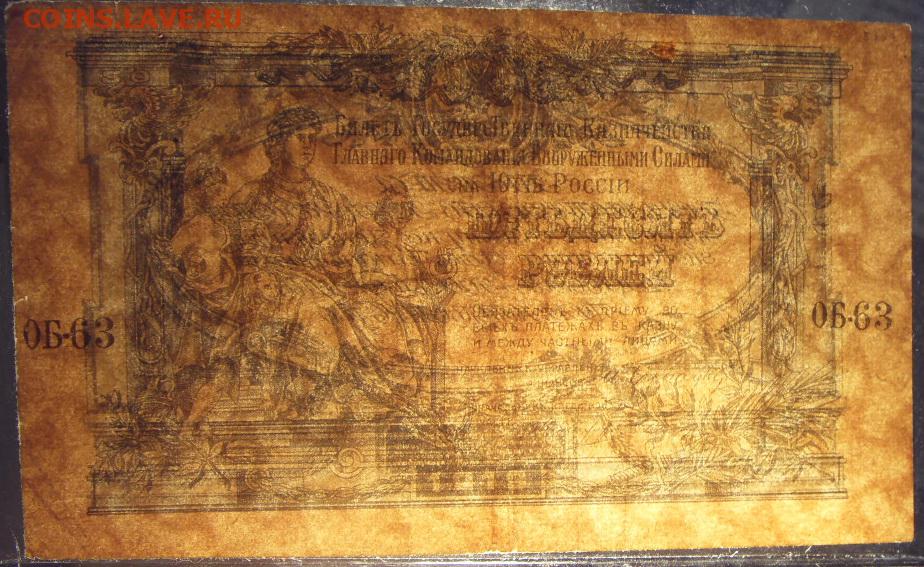 COINS.LAVE.RU
Билетъ Государственнаго Казначейства
Главнаго Командованiя Вооруженными Силами
на Югѣ Россiи
ПЯТЬДЕСЯТЪ
РУБЛЕЙ
ОБЯЗАТЕЛЕНЪ КЪ ПРIЕМУ ВО
ВСѢХЪ ПЛАТЕЖАХЪ ВЪ КАЗНУ
И МЕЖДУ ЧАСТНЫМИ ЛИЦАМИ
ОБ-63
ОБ-63